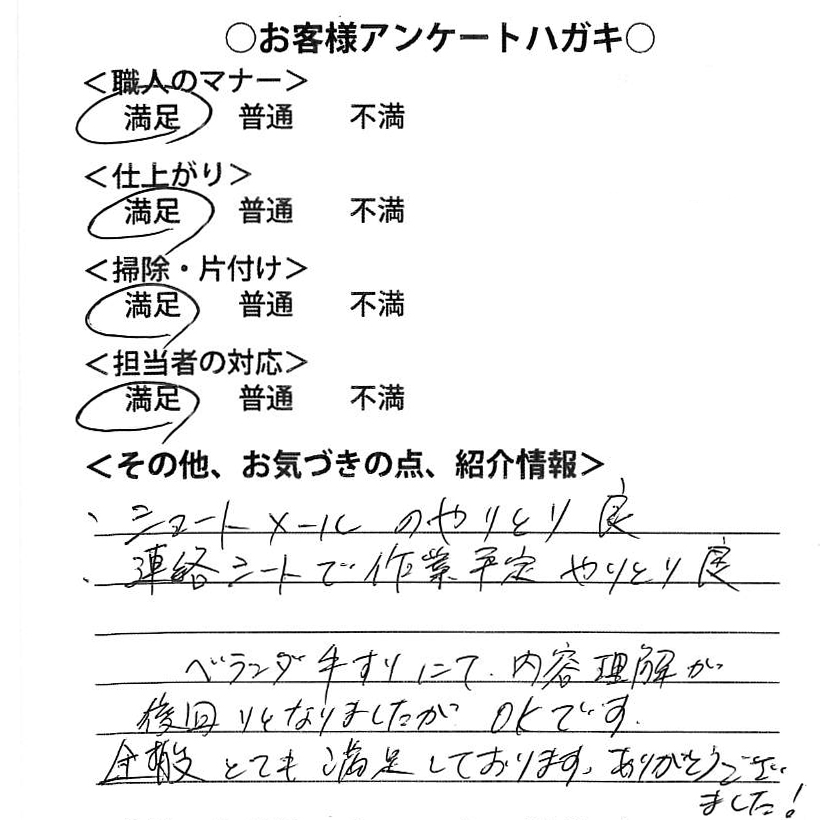 ○お客様アンケートハガキ○
＜職人のマナー＞
満足 普通 不満
＜仕上がり＞
満足 普通 不満
＜掃除・片付け＞
満足 普通 不満
＜担当者の対応＞
満足 普通 不満
＜その他、お気づきの点、紹介情報＞
、ショートメールのやりとり 良
、連絡シートで作業予定やりとり 良
ベランダ手すりにて、内容理解が
後回りとなりましたが OKです。
全般とても満足しております。ありがとうござい
ました！